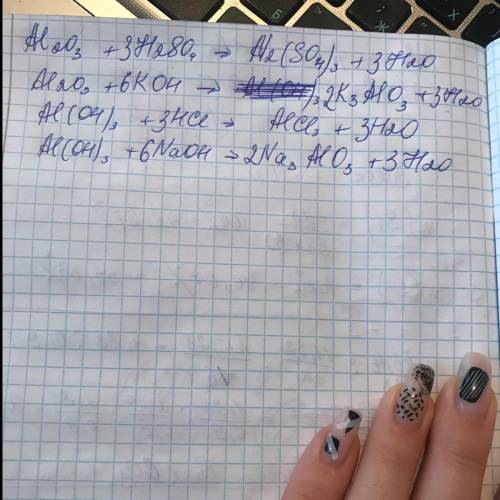 Al2O3 + 3H2SO4 → Al2(SO4)3 + 3H2O
Al2O3 + 6KOH → 2K3AlO3 + 3H2O
Al(OH)3 + 3HCl → AlCl3 + 3H2O
Al(OH)3 + 6NaOH → 2Na3AlO3 + 3H2O